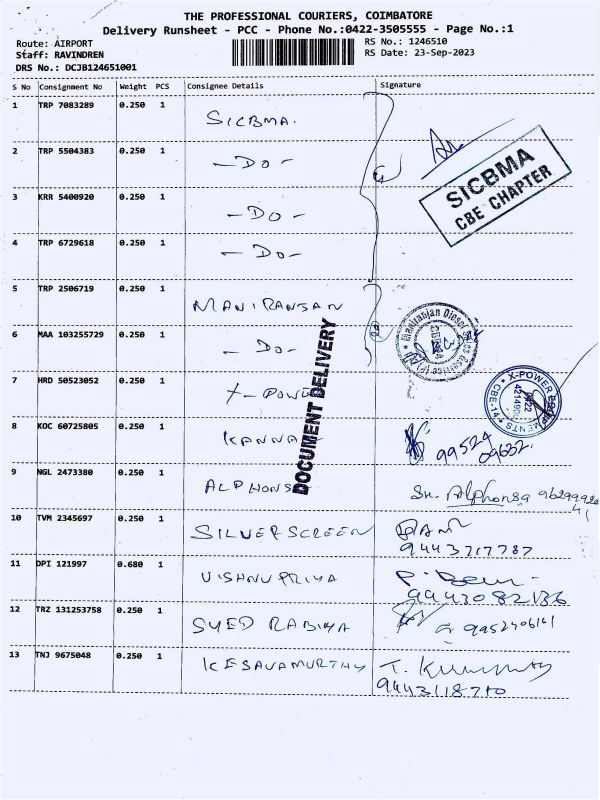 THE PROFESSIONAL COURIERS, COIMBATORE
Delivery Runsheet - PCC - Phone No.:0422-3505555 - Page No.:1
Route: AIRPORT
Staff: RAVINDREN
DRS No.: DCJB124651001
RS No.: 1246510
RS Date: 23-Sep-2023
S No Consignment No Weight PCS Consignee Details Signature
1 TRP 7083289 0.250 1 SICBMA.
2 TRP 5504383 0.250 1 -DO-
SICBMA
CBE CHAPTER
3 KRR 5400920 0.250 1 -DO-
4 TRP 6729618 0.250 1 -DO-
5 TRP 2506719 0.250 1 MANIRANJAN
6 MAA 103255729 0.250 1 -DO-
DOCUMENT DELIVERY
7 HRD 50523052 0.250 1 X-POWE
X-POWER
CBE-14
8 KOC 60725805 0.250 1 KANNA
9 NGL 2473380 0.250 1 ALPHONSA Alphonsa
10 TVM 2345697 0.250 1 SILVERSCREEN
9443717787
11 DPI 121997 0.680 1 VISHNUPRIYA
9443082136
12 TRZ 131253758 0.250 1 SYED RABIYA
13 TNJ 9675048 0.250 1 KESAVAMURTHY
9443118710